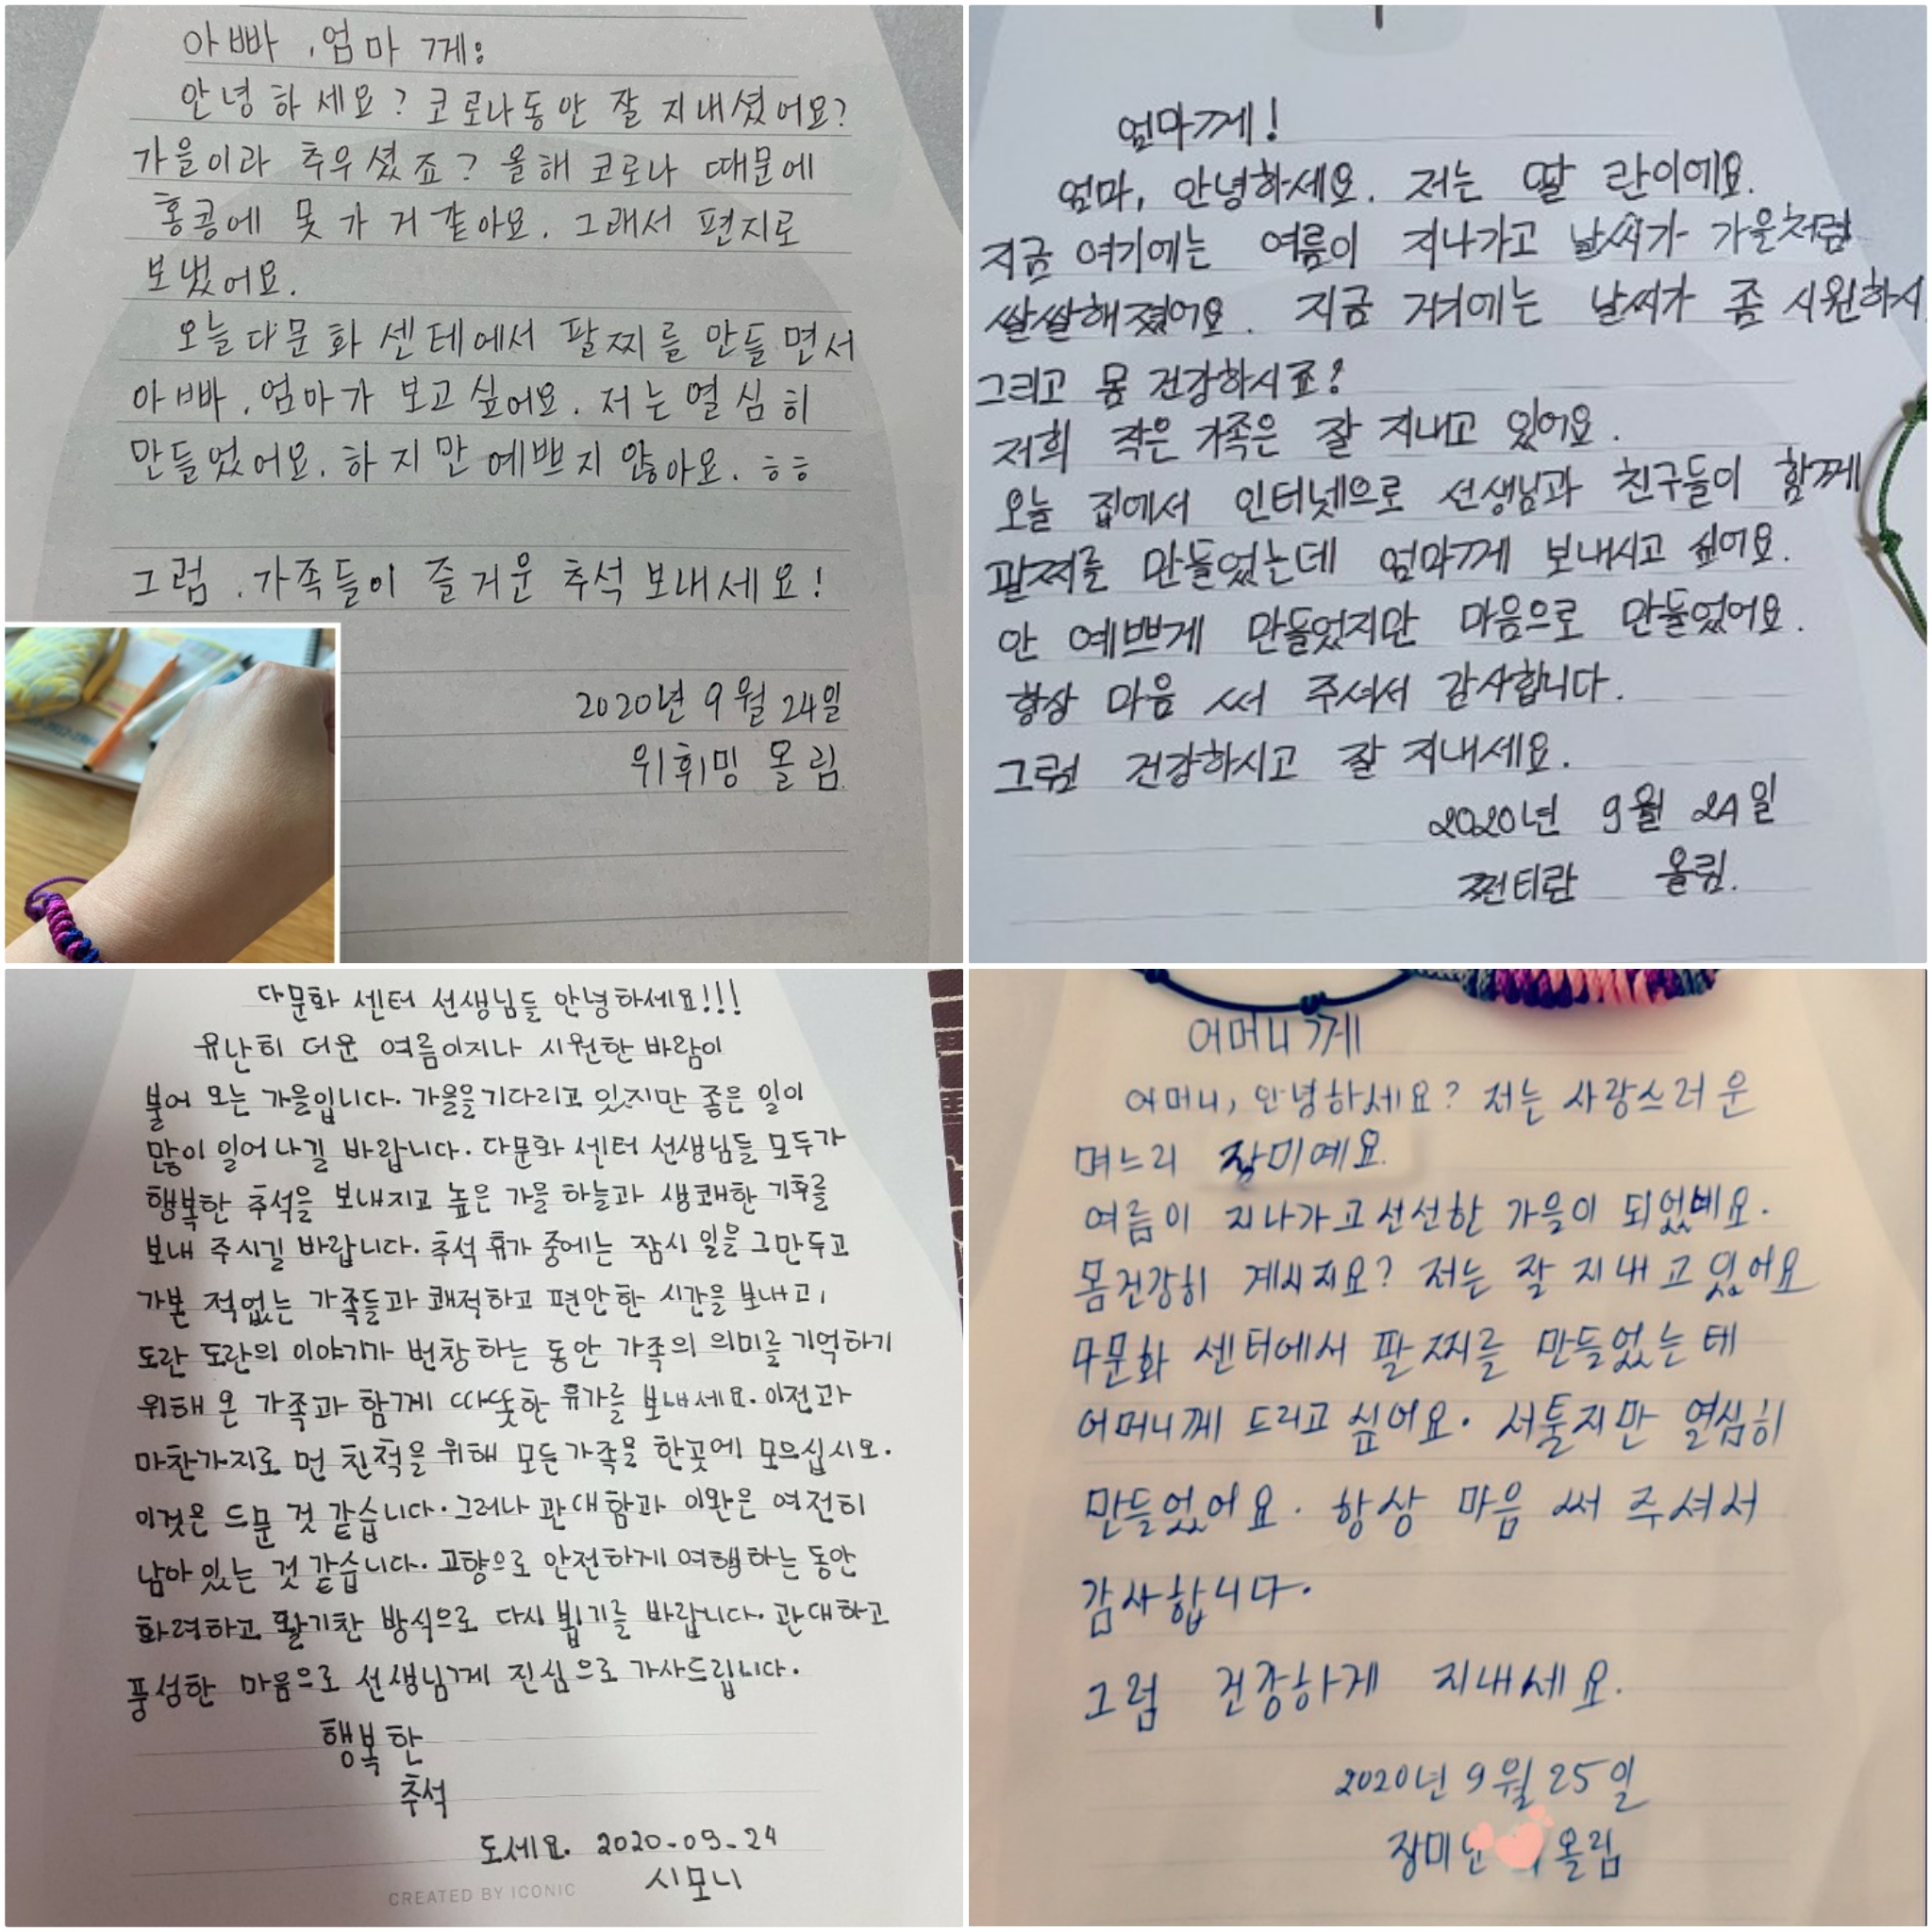 아빠, 엄마 께:
안녕하세요? 코로나동안 잘 지내셨어요?
가을이라 추우셨죠? 올해 코로나 때문에
홍콩에 못 가 거 같아요. 그래서 편지로
보냈어요.
오늘 다문화 센테에서 팔찌를 만들면서
아빠, 엄마가 보고 싶어요. 저는 열심히
만들었어요. 하지만 예쁘지 않아요. ㅎㅎ
그럼, 가족들이 즐거운 추석 보내세요!
2020년 9월 24일
위휘밍 올림.
엄마께!
엄마, 안녕하세요. 저는 딸 란이에요.
지금 여기에는 여름이 지나가고 날씨가 가을처럼
쌀쌀해졌어요. 지금 거기에는 날씨가 좀 시원하시
그리고 몸 건강하시죠?
저희 작은 가족은 잘 지내고 있어요.
오늘 집에서 인터넷으로 선생님과 친구들이 함께
팔찌를 만들었는데 엄마께 보내시고 싶어요.
안 예쁘게 만들었지만 마음으로 만들었어요.
항상 마음 써 주셔서 감사합니다.
그럼 건강하시고 잘 지내세요.
2020년 9월 24일
쩐티란 올림.
다문화 센터 선생님들 안녕하세요!!!
유난히 더운 여름이지나 시원한 바람이
불어 오는 가을입니다. 가을을기다리고 있지만 좋은 일이
많이 일어나길 바랍니다. 다문화 센터 선생님들 모두가
행복한 추석을 보내지고 높은 가을 하늘과 생쾌한 기후를
보내 주시길 바랍니다. 추석 휴가 중에는 잠시 일을 그만두고
가본 적없는 가족들과 쾌적하고 편안한 시간을 보내고,
도란 도란의 이야기가 번창하는 동안 가족의 의미를 기억하기
위해 온 가족과 함께 따뜻한 휴가를 보내세요. 이전과
마찬가지로 먼 친척을 위해 모든가족을 한곳에 모으십시오.
이것은 드문 것 같습니다. 그러나 관대함과 이완은 여전히
남아 있는 것 같습니다. 고향으로 안전하게 여행하는 동안
화려하고 활기찬 방식으로 다시 뵙기를 바랍니다. 관대하고
풍성한 마음으로 선생님께 진심으로 가사드립니다.
행복한
추석
도세요. 2020-09-24
시모니
CREATED BY ICONIC
어머니께
어머니, 안녕하세요? 저는 사랑스러운
며느리 장미예요.
여름이 지나가고 선선한 가을이 되었네요.
몸건강히 계시지요? 저는 잘 지내고 있어요
다문화 센터에서 팔찌를 만들었는테
어머니께 드리고 싶어요. 서툴지만 열심히
만들었어요. 항상 마음 써 주셔서
감사합니다.
그럼 건강하게 지내세요.
2020년 9월 25일
장미 올림